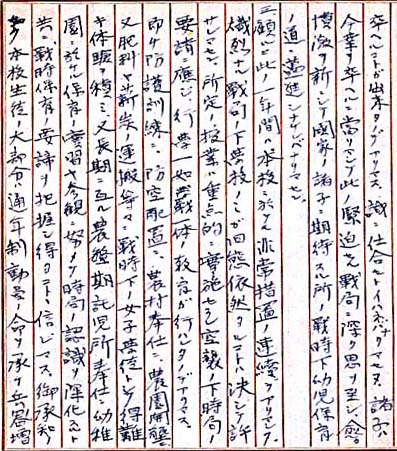 卒ヘルコトガ出来タノデアリマス、誠ニ仕合セトイハネバナリマセヌ、諸子ハ
今業ヲ卒ヘルニ当リマシテ此ノ緊迫セル戦局ニ深ク思ヲ至シ、愈々
憤激ヲ新ニシテ国家ノ諸子ニ期待スル所、戦時下幼児保育
ノ道ニ盡進シナケレバナリマセン、
顧ミルニ此ノ一年間ハ本校ニ於テ非常措置ノ連続デアリマシタ、
熾烈ナル戦局ノ下学校ノミガ旧態依然タルコトハ決シテ許
サレマセン、所定ノ授業ハ重点的ニ実施セラレ空襲下時局ノ
要請ニ應ジ、行学一如学体ノ教育ガ行ハレタノデアリマス
即チ防護訓練ニ、防空配置ニ、農村奉仕ニ、農園開墾ニ
又肥料ヤ薪炭ノ運搬等々ニ戦時下ノ女子学徒トシテ得難
キ体験ヲ積ミ、又長期ニ亘ル農繁期託児所奉仕、幼稚
園ニ於ケル保育ノ実習ヤ参観ニ努メテ時局ノ認識ヲ深化スルト
共ニ戦時保育ノ要諦ヲ把握シ得タコトト信ジマス、御承知ノ
本校生徒ノ大部分ハ通年制動員ノ命ヲ承ケ兵器増